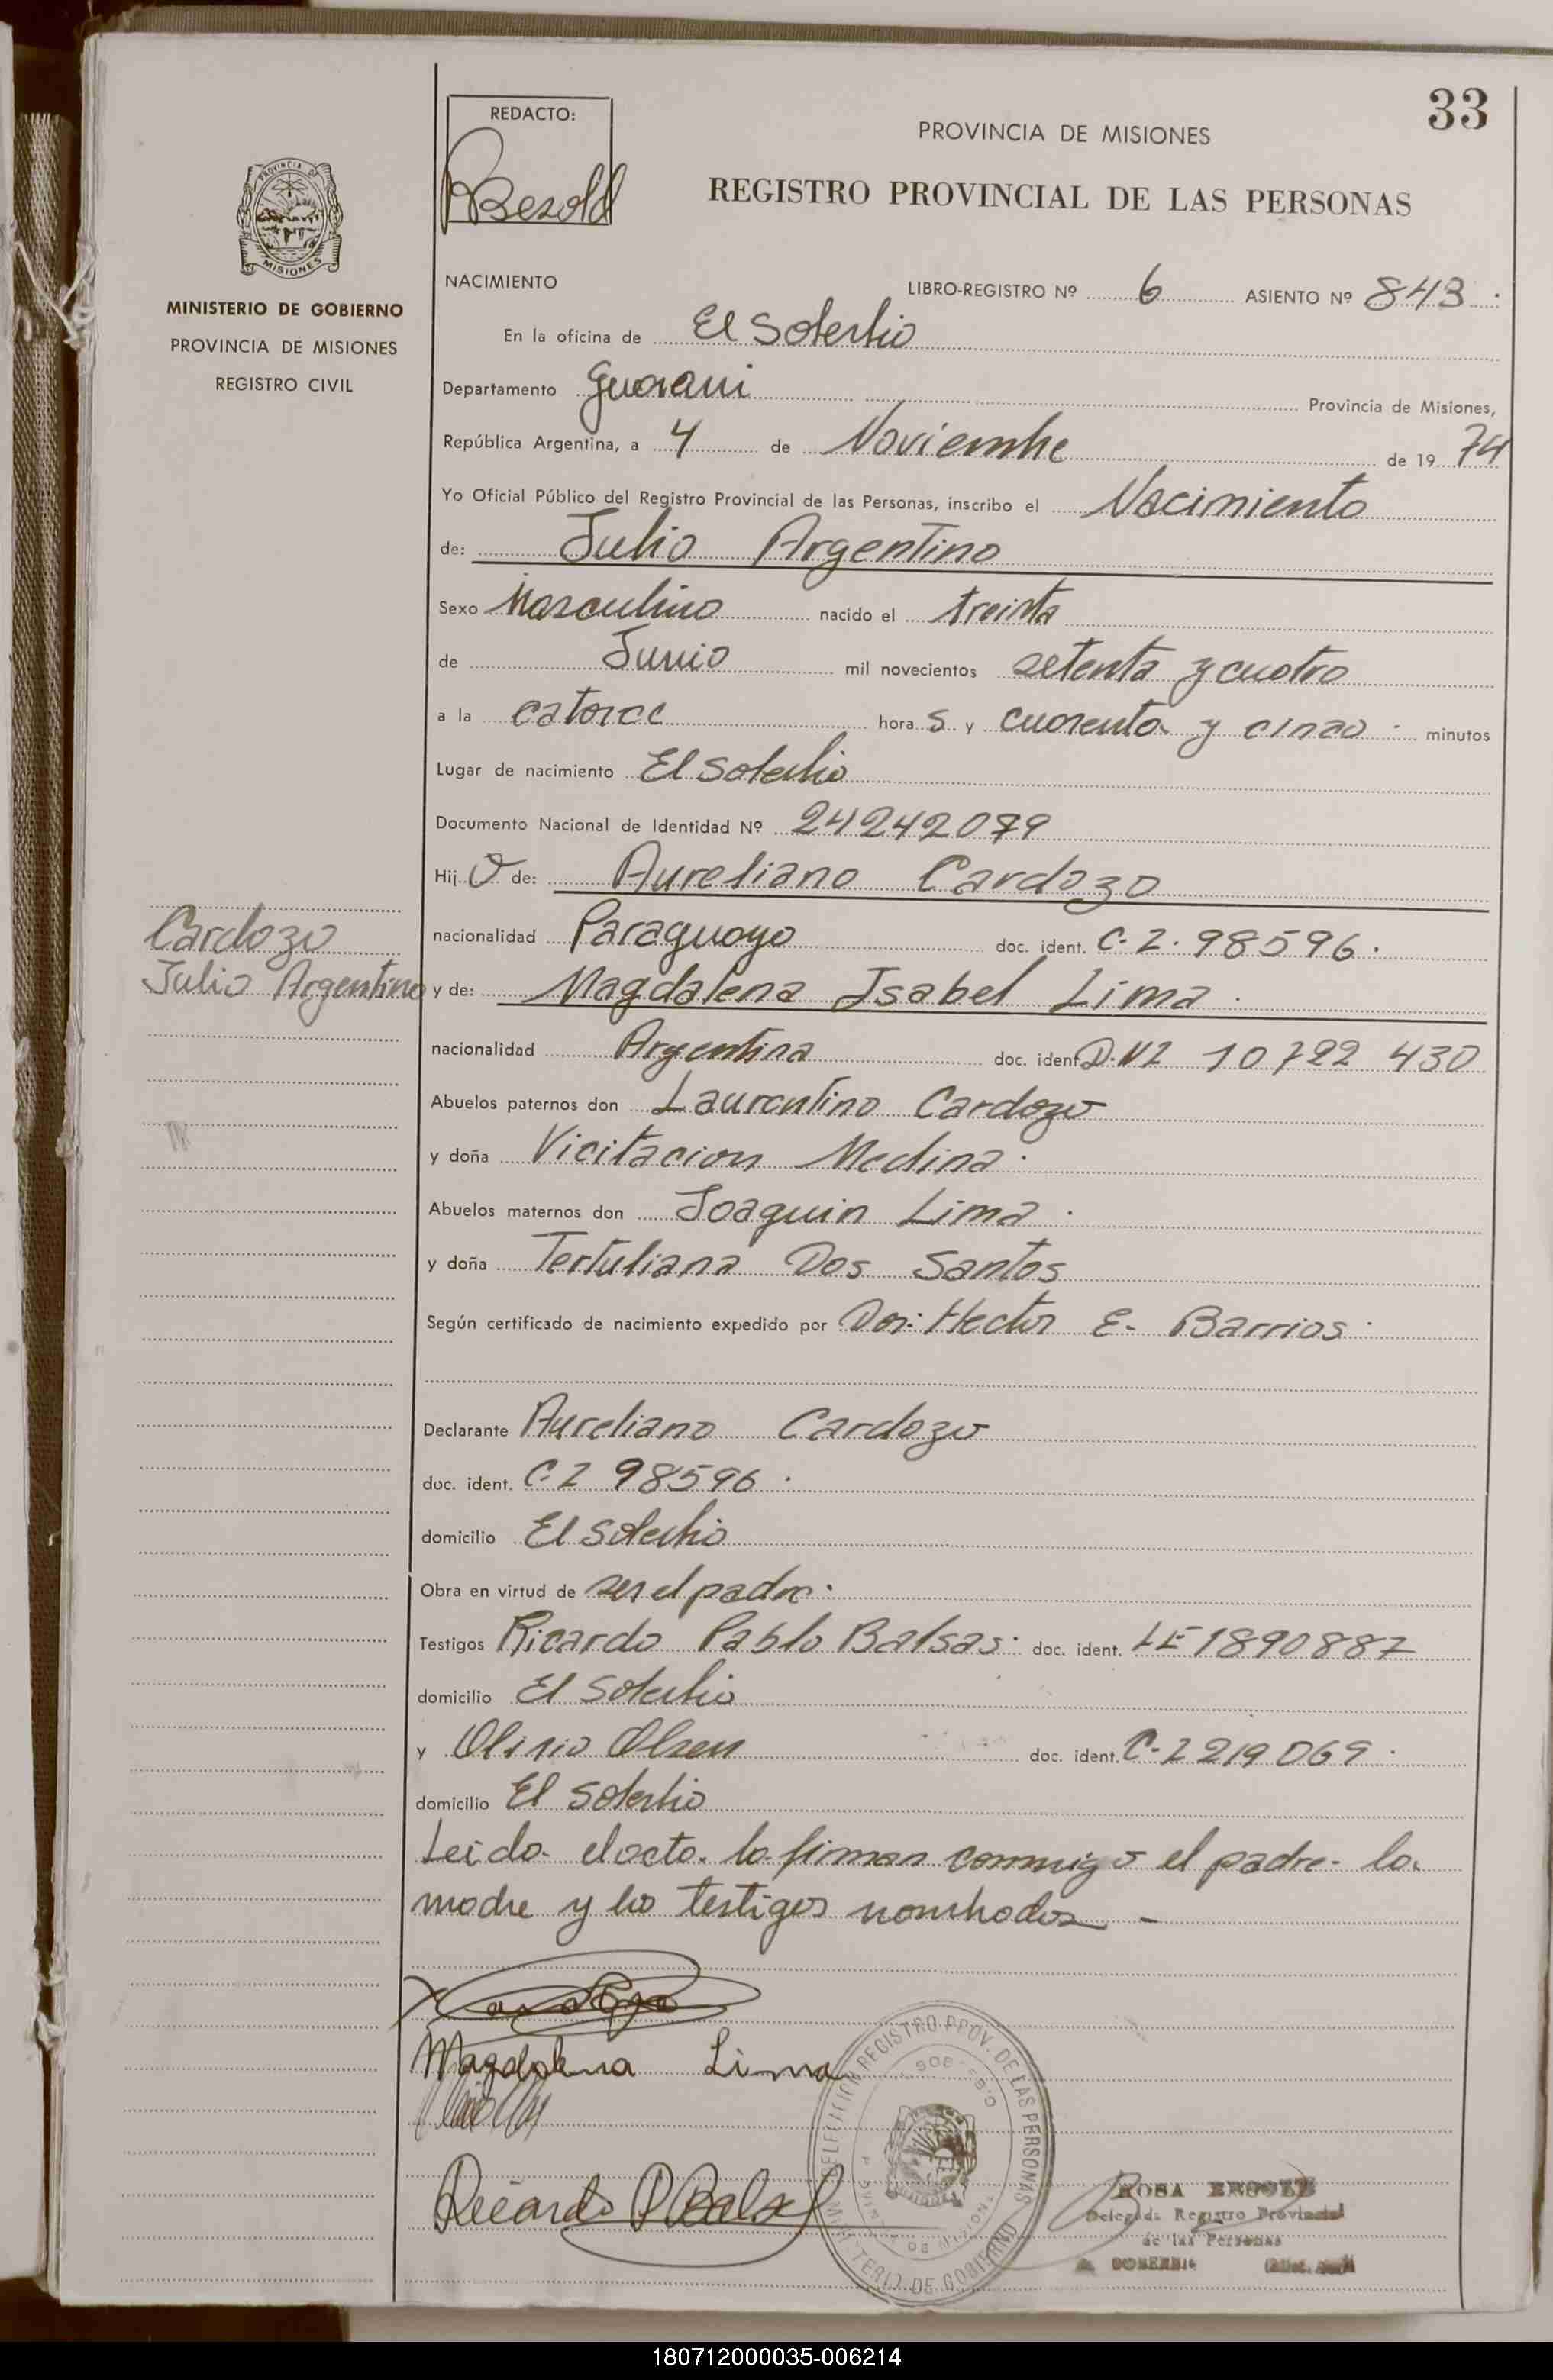 33
REDACTO:
Besold
PROVINCIA DE MISIONES
REGISTRO PROVINCIAL DE LAS PERSONAS
PROVINCIA DE
MISIONES
MINISTERIO DE GOBIERNO
PROVINCIA DE MISIONES
REGISTRO CIVIL
NACIMIENTO LIBRO-REGISTRO Nº 6 ASIENTO Nº 843
En la oficina de El Soberbio
Departamento Guarani Provincia de Misiones,
República Argentina, a 4 de Noviembre de 19 74
Yo Oficial Público del Registro Provincial de las Personas, inscribo el Nacimiento
de: Julio Argentino
Sexo Masculino nacido el treinta
de Junio mil novecientos setenta y cuatro
a la catorce hora s y cuarenta y cinco minutos
Lugar de nacimiento El Soberbio
Documento Nacional de Identidad Nº 24242079
Hij o de: Aureliano Cardozo
Cardozo
Julio Argentino
nacionalidad Paraguayo doc. ident. C. I. 98596.
y de: Magdalena Isabel Lima.
nacionalidad Argentina doc. ident. D.NI 10722 430
Abuelos paternos don Laurentino Cardozo
y doña Vicitacion Medina.
Abuelos maternos don Joaquin Lima.
y doña Tertuliana Dos Santos
Según certificado de nacimiento expedido por Dor. Hector E. Barrios.
Declarante Aureliano Cardozo
doc. ident. C. I 98596.
domicilio El Soberbio
Obra en virtud de ser el padre.
Testigos Ricardo Pablo Balsas. doc. ident. LE 1890887
domicilio El Soberbio
y Olirio Olsen doc. ident. C. I 219069.
domicilio El Soberbio
Leido el acta la firman conmigo el padre la
madre y los testigos nombrados -
Magdalena Lima
Ricardo P Balsa
DELEGACION REGISTRO PROV. DE LAS PERSONAS
MINISTERIO DE GOBIERNO
ROSA
Delegada Registro Provincial
de las Personas
180712000035-006214